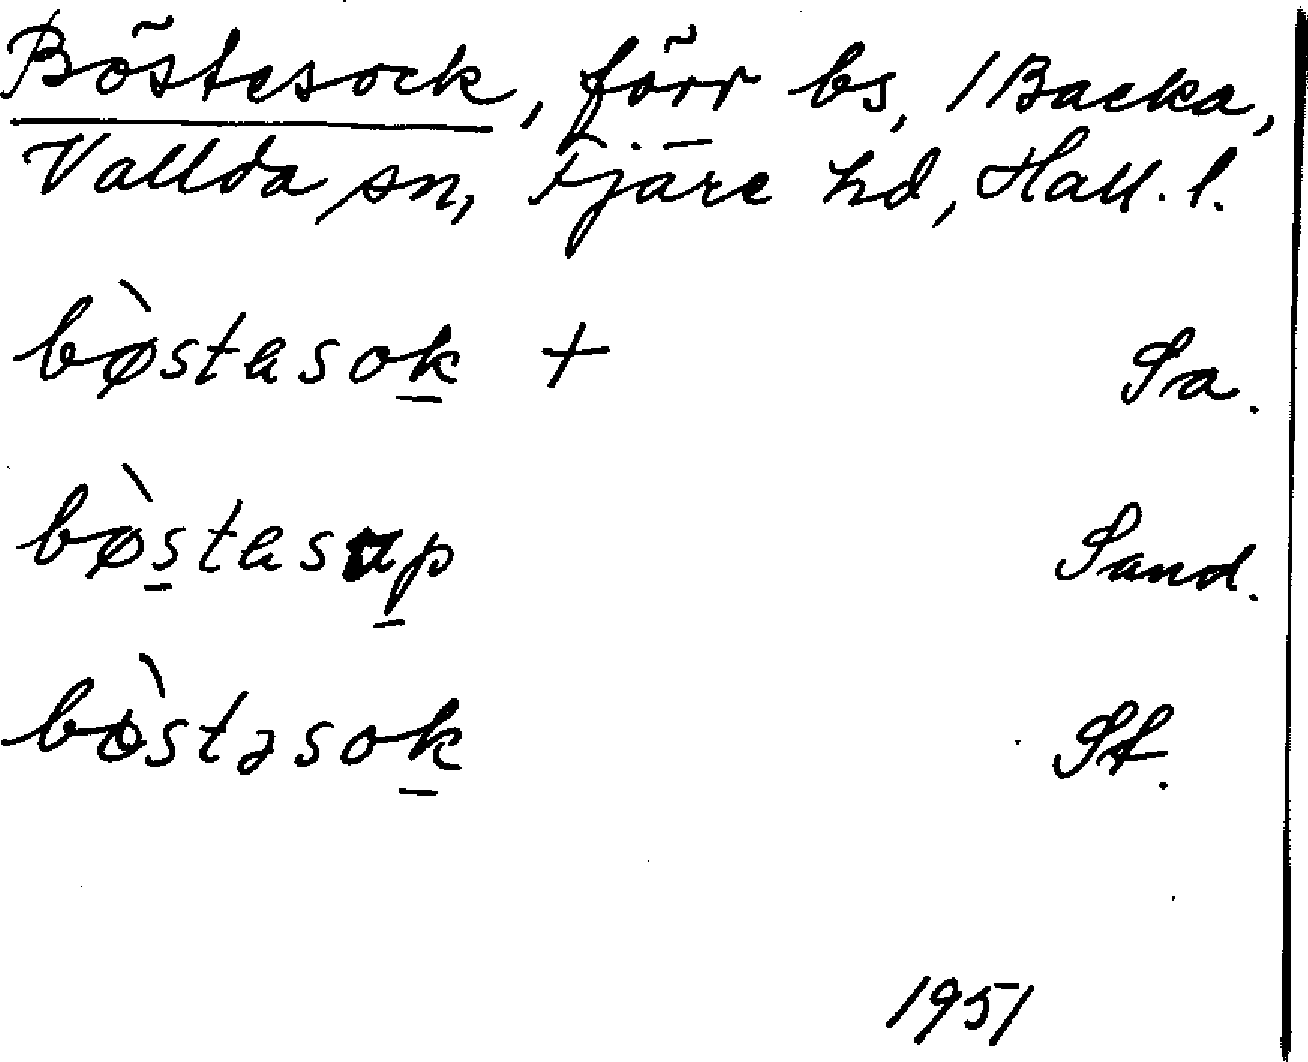 Böstesock, förr bs, /Backa,
Vallda sn, Fjäre hd, Hall. l.
bø̀stasok + Sa.
bø̀stasup Sand.
bòstəsok St.
1951